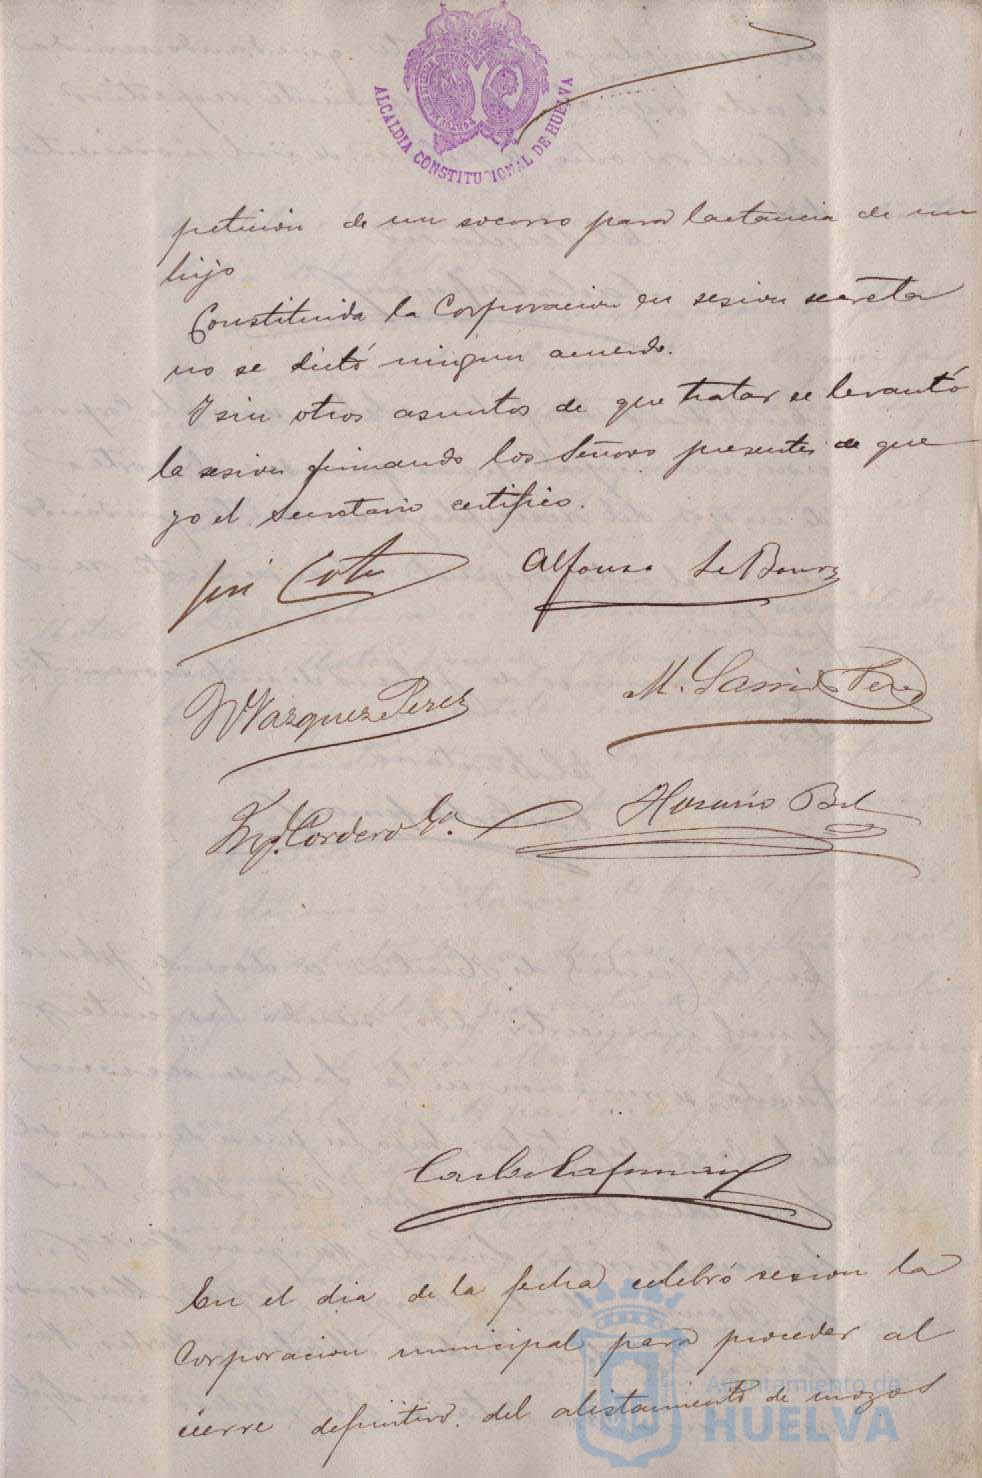 ALCALDIA CONSTITUCIONAL DE HUELVA
peticion de un socorro para lactancia de un
hijo
Constituida la Corporacion en sesion secreta
no se dictó ningun acuerdo.
Y sin otros asuntos de que tratar se levantó
la sesion firmando los Señores presentes de que
yo el Secretario certifico.
José Coto
Alfonso Le Bourg
Vazquez Perez
M. Garrido Perez
Cordero
Horacio Bel
En el dia de la fecha celebró sesion la
Corporacion municipal para proceder al
cierre definitivo del alistamiento de mozos
Ayuntamiento de
HUELVA